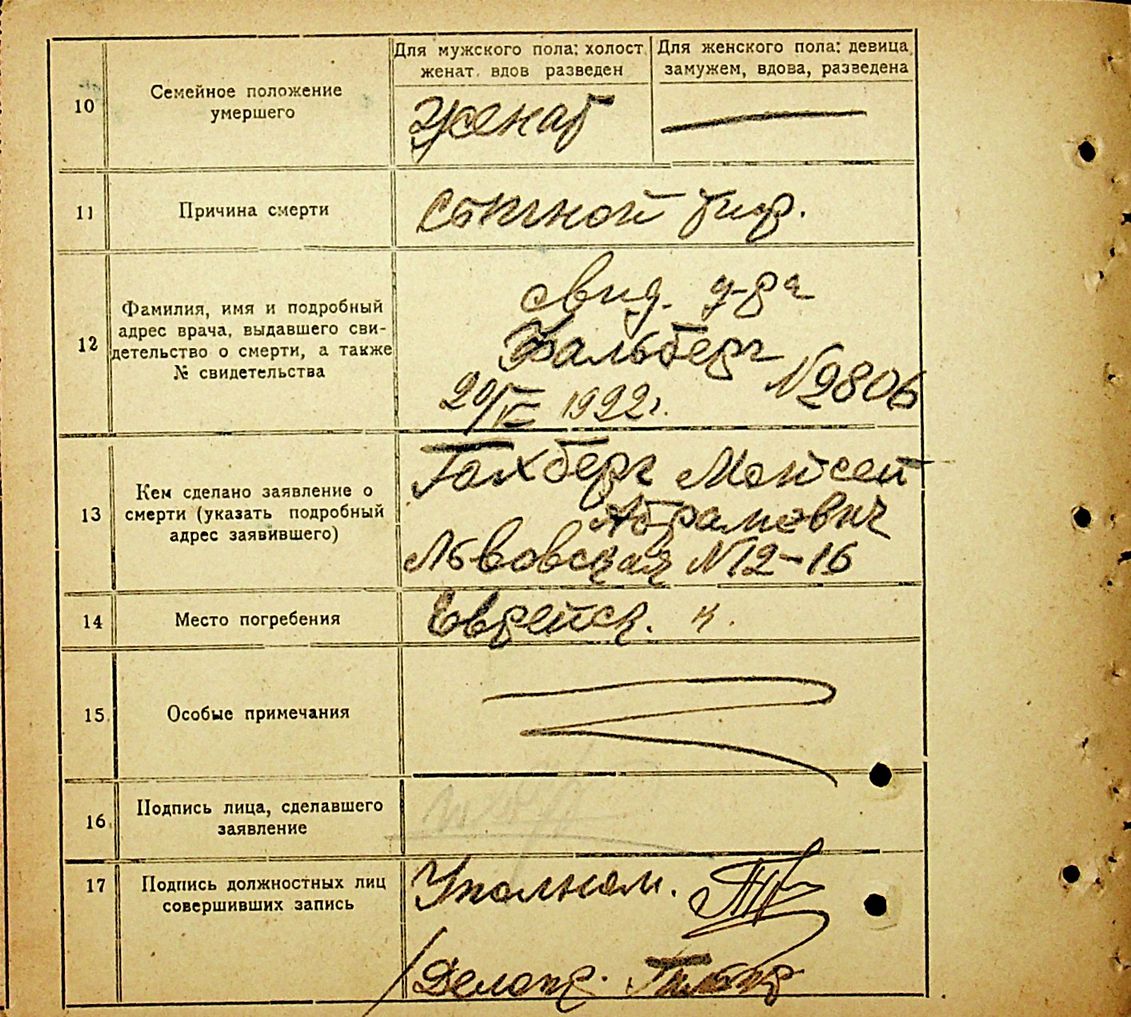 Для мужского пола: холост
женат. вдов разведен
Для женского пола: девица,
замужем, вдова, разведена
10
Семейное положение
умершего
Женат
11
Причина смерти
Сыпной тиф.
12
Фамилия, имя и подробный
адрес врача, выдавшего сви-
детельство о смерти, а также
№ свидетельства
свид. д-ра
Вальберг
N2806
20/IV 1922г.
13
Кем сделано заявление о
смерти (указать подробный
адрес заявившего)
Гохберг Мойсей
Абрамович
Львовская N12-16
14
Место погребения
Еврейск. к.
15
Особые примечания
16
Подпись лица, сделавшего
заявление
17
Подпись должностных лиц
совершивших запись
Уполном.
Делопр.